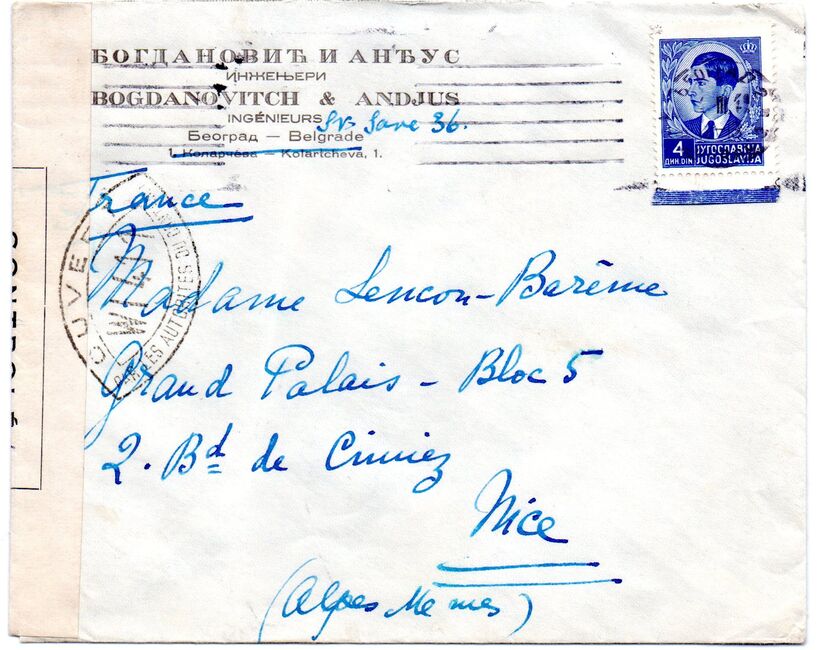 БОГДАНОВИЋ И АНЂУС
ИНЖЕЊЕРИ
BOGDANOVITCH & ANDJUS
INGÉNIEURS Sv. Save 36.
Београд – Belgrade
1, Коларчева – Kolartcheva, 1.
4
ДИН. DIN
ЈУГОСЛАВИЈА
JUGOSLAVIJA
France
OUVERT
PAR LES AUTORITÉS
W 144
Madame Lencon-Barême
Grand Palais – Bloc 5
2. Bd de Cimiez
Nice
(Alpes Mmes)